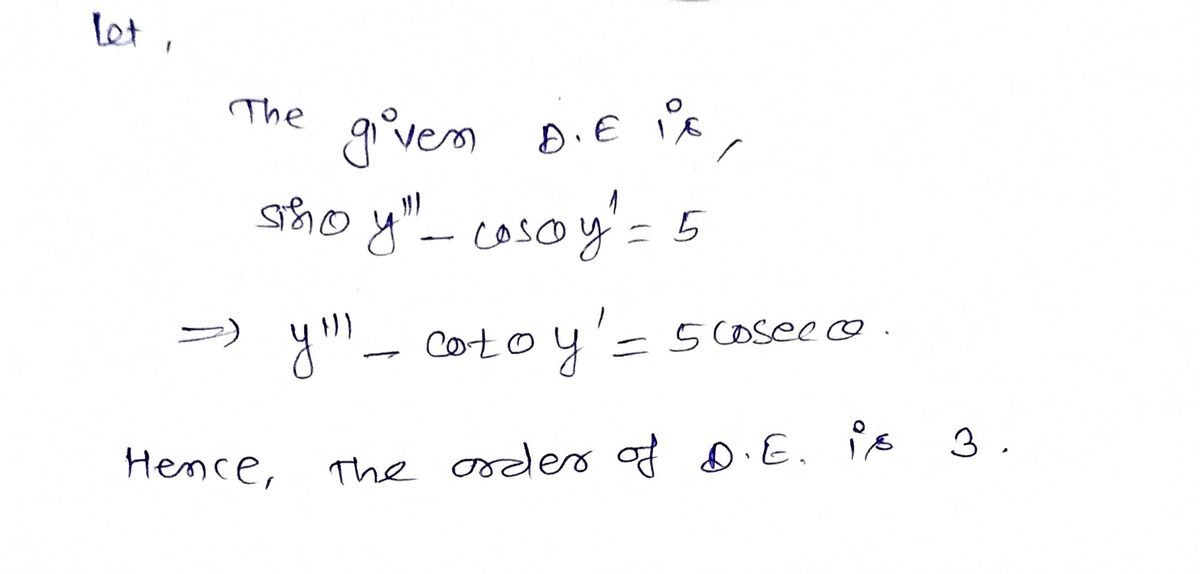 Let,
The given D.E is,
sinθ y''' - cosθ y' = 5
=> y''' - cotθ y' = 5 cosecθ.
Hence, The order of D.E. is 3.